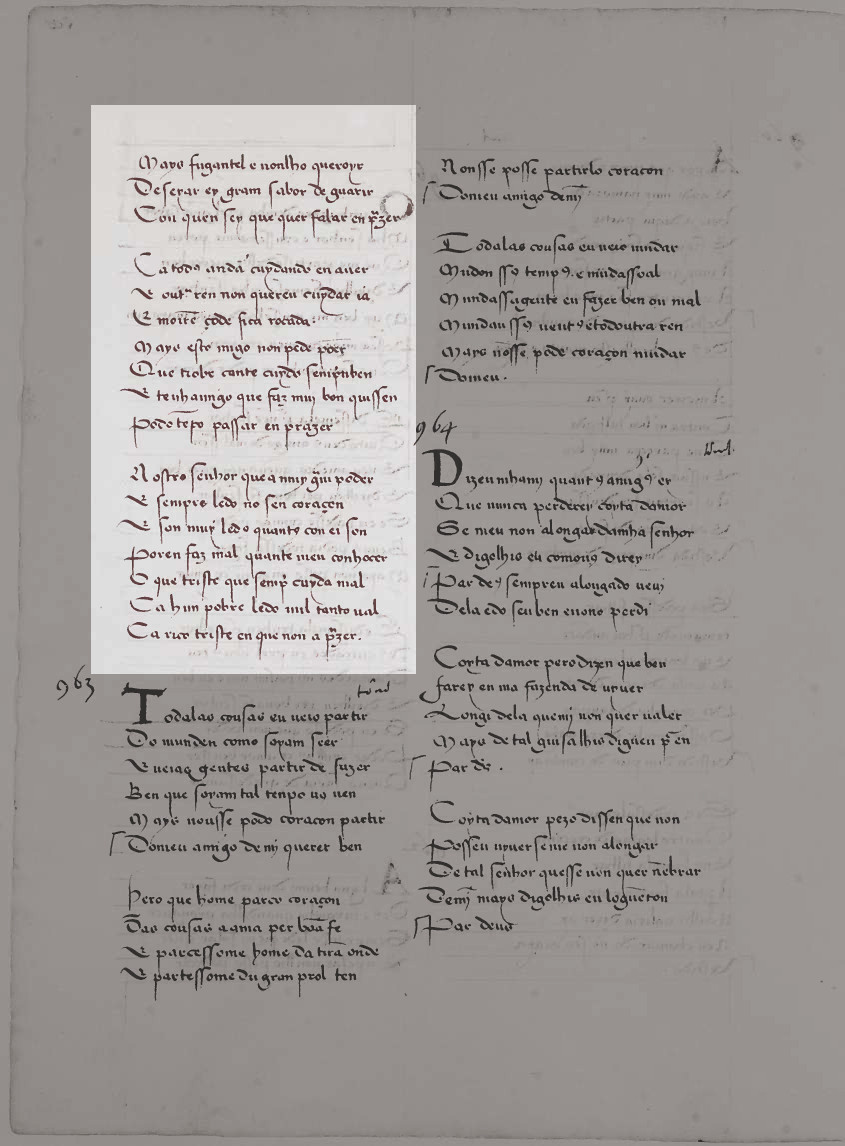 Mays fugantel e nonlho queroyr
Deseiar ey gram sabor de guarir
Con quen sey que quer falar en prazer
Ca todꝰ andã cuydando en auer
E out ren non queren cuydar ia
E morrẽ çede fica
Mays esto migo non pode
Que trobe cante cuydo senprẽ ben
E tenhamigo que faz muy bon quissen
Podo tẽpo passar en prazer
Nostro senhor que a mny gram poder
E sempre ledo no sen coraçon
E son muy ledo quantꝰ con el son
Poren faz mal quante meu conhocer
O que triste que semp cuyda mal
Ca hun pobre ledo mil tanto ual
Ca rico triste en que non a pzer.
963
Todalas cousas eu ueio partir
Do munden como soyam seer
E ueiaq gentes partir de fazer
Ben que soyam tal tenpo uo uen
Mays nousse podo coracon partir
Domeu amigo de mj querer ben
Pero que home parco coraçon
Das cousas a ama per bõa fe
E parcessome home da tirã onde
E partessome du gran prol ten
Nonsse posse partirlo coracon
Domeu amigo demj
Todalas cousas eu ueio mudar
Mudon ssꝰ tempꝰ. e mudassoal
Mudassagente eu fazer ben ou mal
Mundau ssꝰ uentꝰ etodoutra ren
Mays nosse pode coraçon mudar
Domeu.
964
Dizeu mhami quantꝰ amigꝰ er
Que nunca perderey coyta damor
Se meu non alongar damha senhor
E digolhis eu comouꝰ direy
Par deꝰ sempreu alongado ueuj
Dela edo seu ben enono perdi
Coyta damor pero dizen que ben
farey en ma fazenda de uyuer
Longi dela quemj non quer ualer
Mays de tal guisa lhis digueu en
Par dꝰ .
Coyta damor pezo dissen que non
Posseu uyuer seme non alongar
De tal senhor quesse non quer nẽbrar
Demj mays digolhis eu loguẽton
Par deus